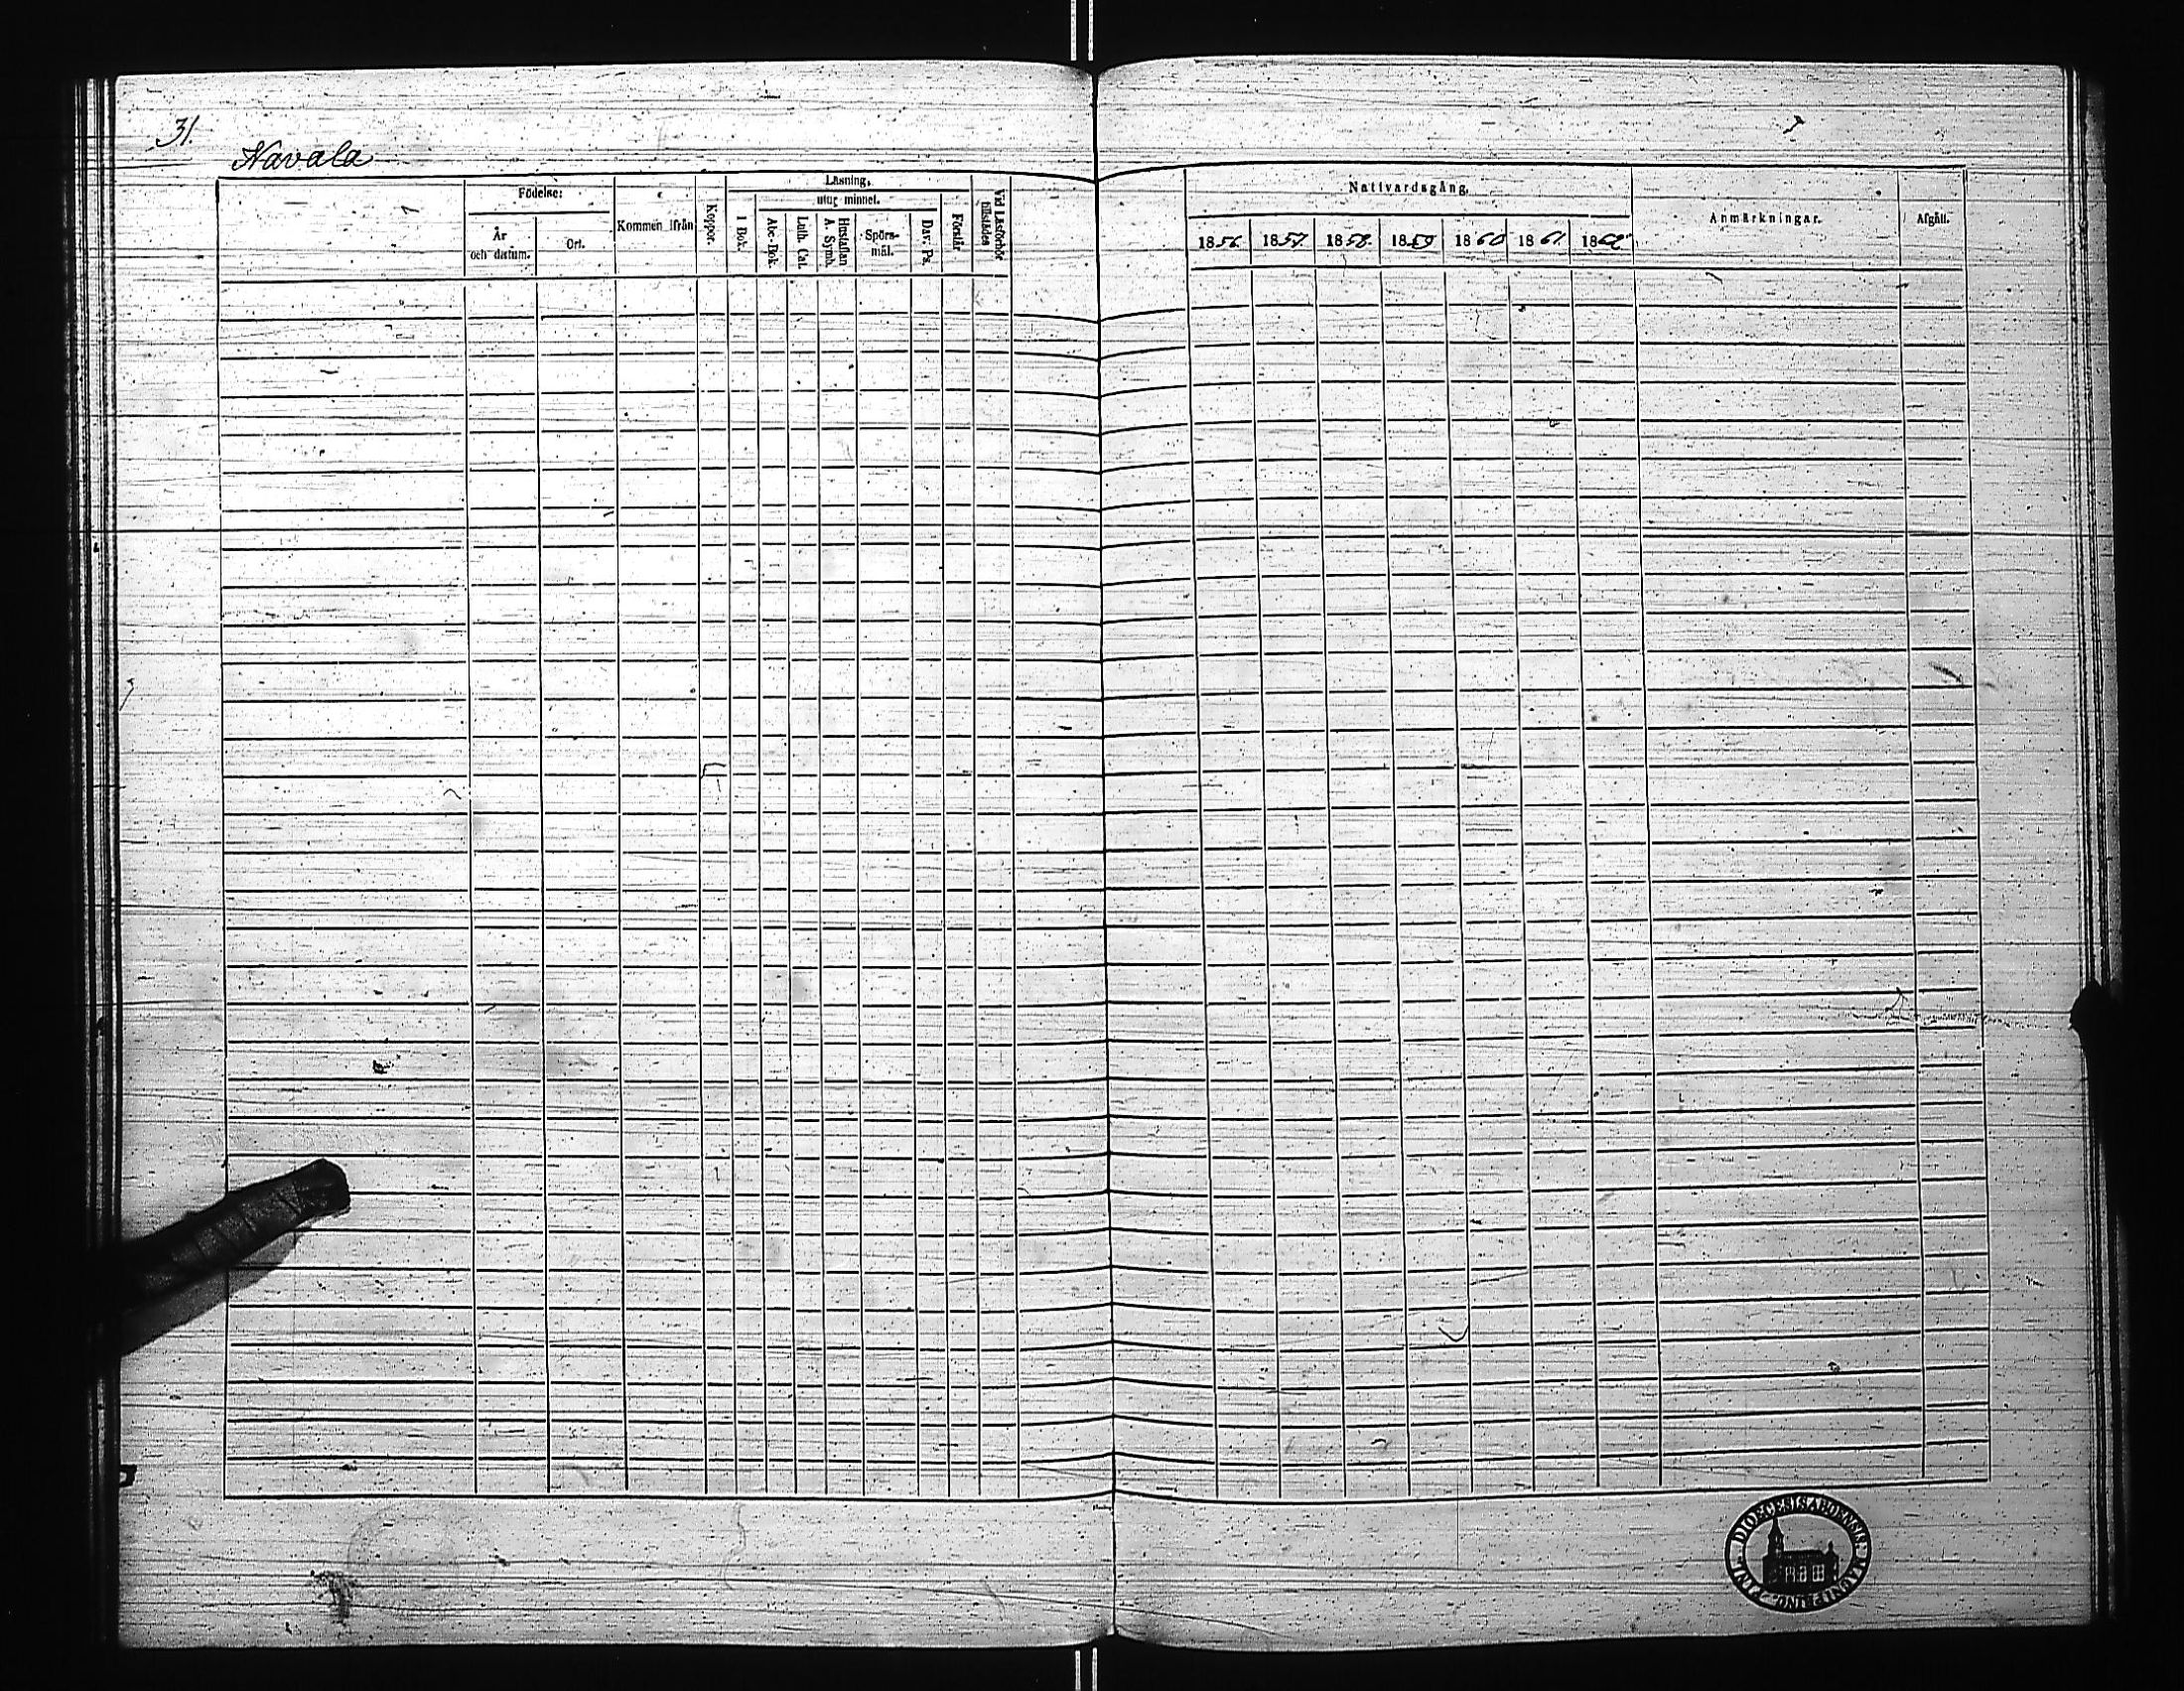 31.
Navala
Födelse:
År
och datum.
Ort.
Kommen ifrån
Koppor.
Läsning,
utur minnet.
I Bok.
Abc-Bok.
Luth. Cat.
Hustaflan
A. Symb.
Spörs-
mål.
Dav. Ps.
Förstår
Vid Läsförhör
tillstädes
Nattvardsgång.
1856. 1857. 1858. 1859 1860 1861. 1862.
Anmärkningar.
Afgått.